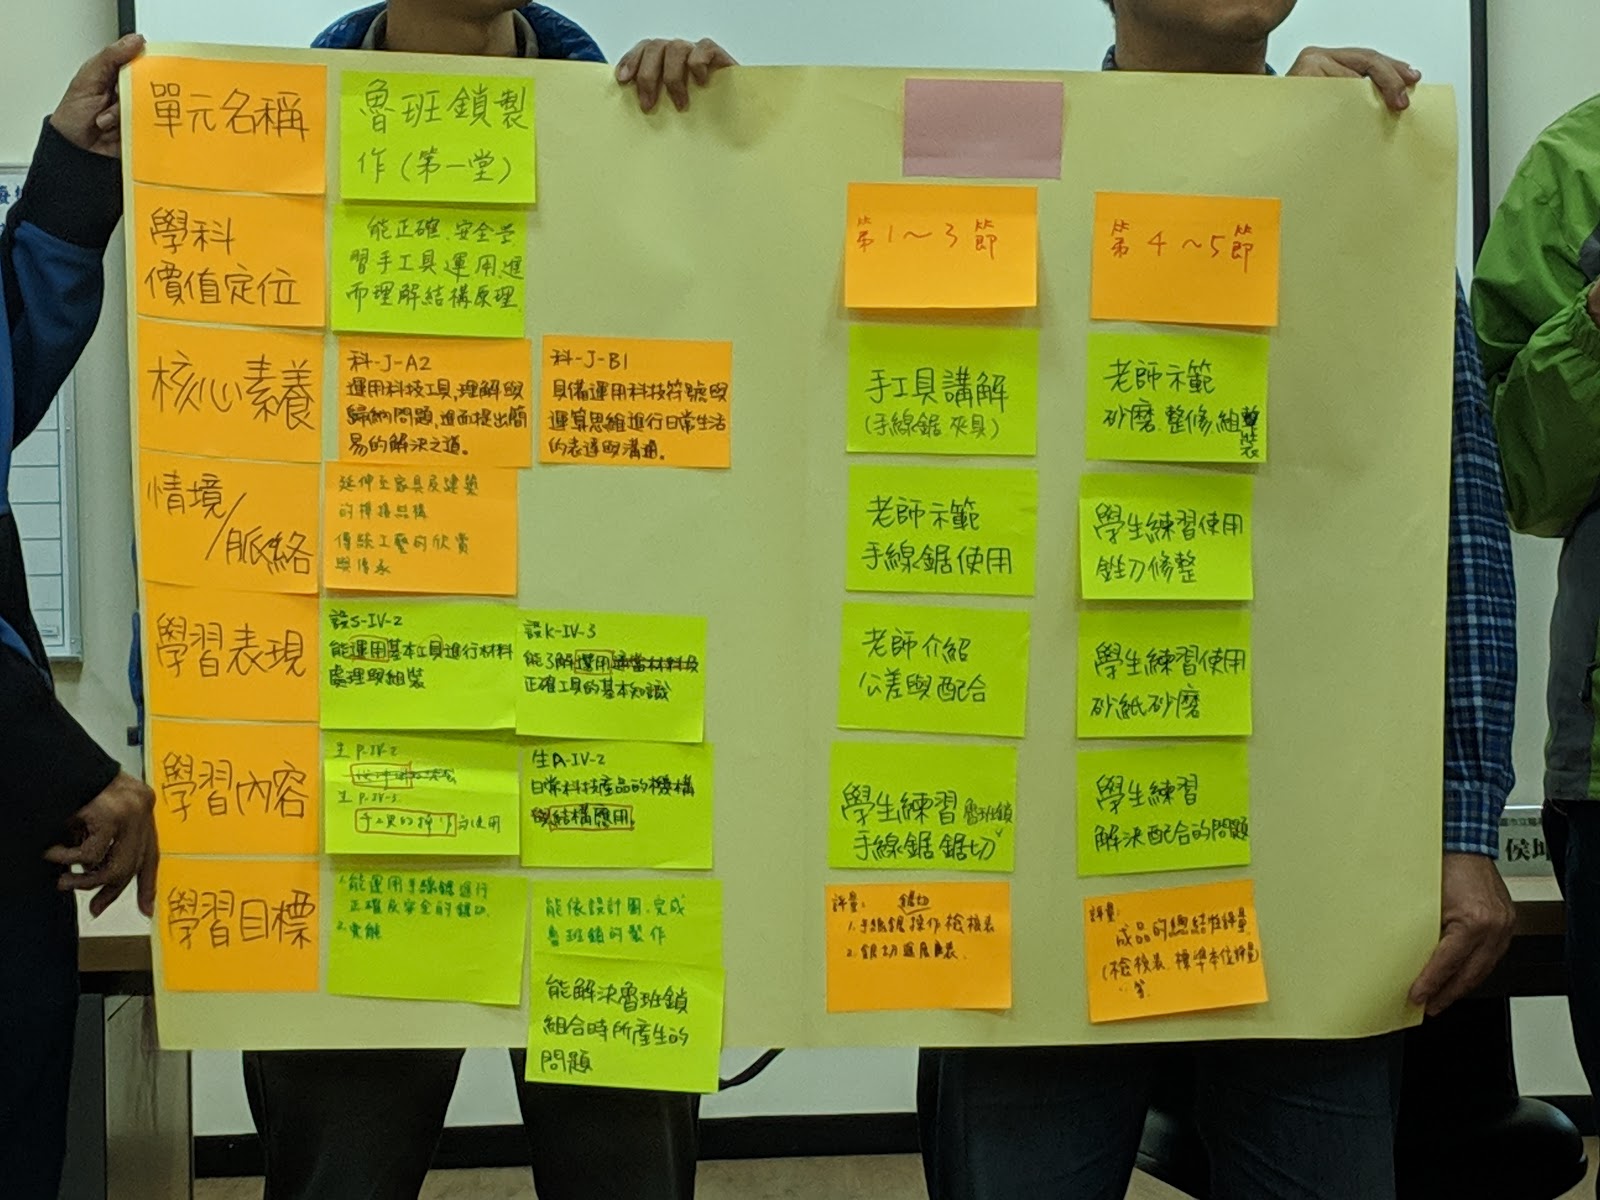 單元名稱
魯班鎖製
作(第一堂)
學科
價值定位
能正確、安全學
習手工具運用,進
而理解結構原理.
核心素養
科-J-A2
運用科技工具,理解與
歸納問題,進而提出簡
易的解決之道。
科-J-B1
具備運用科技符號與
運算思維進行日常生活
的表達與溝通。
情境/
脈絡
延伸至家具及建築
的榫接結構
傳統工藝的欣賞
與傳承
學習表現
設S-IV-2
能運用基本工具進行材料
處理與組裝
設K-IV-3
能了解選用適當材料及
正確工具的基本知識
學習內容
生P-IV-2
生P-IV-3
手工具的操作與使用
生A-IV-2
日常科技產品的機構
與結構應用。
學習目標
1.能運用手線鋸進行
正確及安全的鋸切.
2.
能依設計圖,完成
魯班鎖的製作
能解決魯班鎖
組合時所產生的
問題
第1~3節
手工具講解
(手線鋸.夾具)
老師示範
手線鋸使用
老師介紹
公差與配合
學生練習魯班鎖
手線鋸鋸切
評量: 鋸切
1.手線鋸操作檢核表
2.鋸切進度表.
第4~5節
老師示範
砂磨.整修.組裝
學生練習使用
銼刀修整
學生練習使用
砂紙砂磨
學生練習
解決配合的問題
評量:
成品的總結性評量
(檢核表、標準本位評量)
等
侯坤